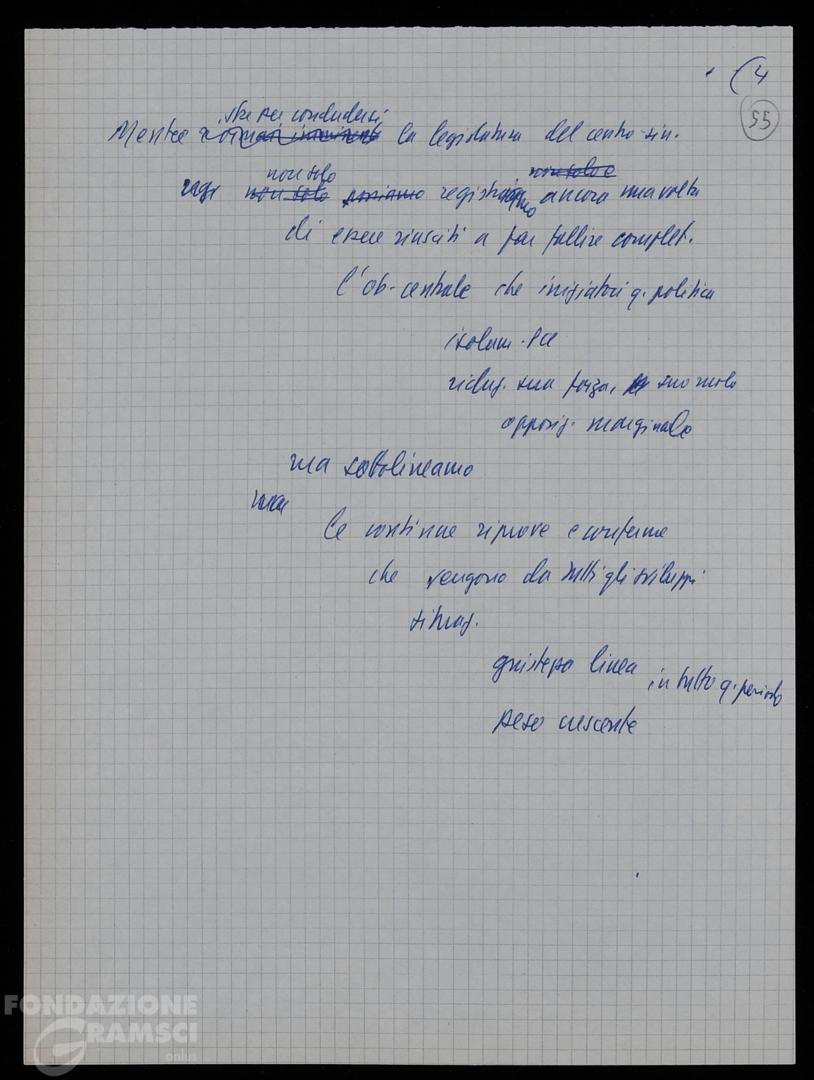 (4
55
sta per concludersi
Mentre la legislatura del centro-sin.
non solo non solo e
noi non solo possiamo registriamo ancora una volta
di essere riusciti a far fallire complet.
l'ob. centrale che iniziatori q. politica
isolam. Pci
riduz. sua forza, suo ruolo
opposiz. marginale
ma sottolineamo
le continue riprove e conferme
che vengono da tutti gli sviluppi
situaz.
giustezza linea in tutto q. periodo
peso crescente
FONDAZIONE
GRAMSCI
onlus